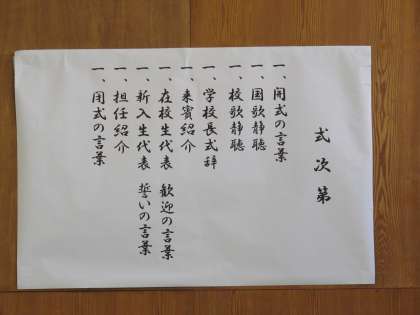 式次第
一、開式の言葉
一、国歌静聴
一、校歌静聴
一、学校長式辞
一、来賓紹介
一、在校生代表　歓迎の言葉
一、新入生代表　誓いの言葉
一、担任紹介
一、閉式の言葉